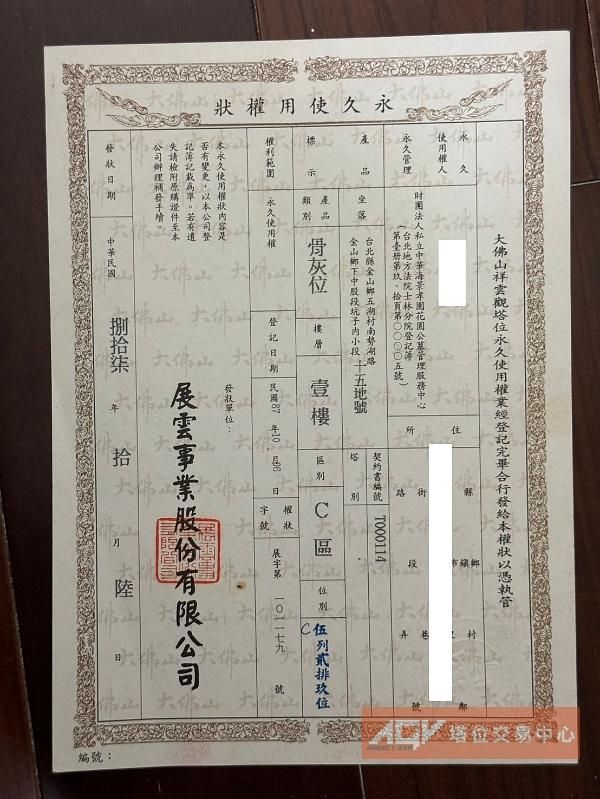 永久使用權狀
大佛山祥雲觀塔位永久使用權業經登記完畢合行發給本權狀以憑執管
永久
使用權人
住
所
縣
鄉
鎮
市
村
鄰
街
路
段
巷
弄
號
永久管理
財團法人私立中華海景孝園花園公墓管理服務中心
(台北地方法院士林分院登記簿
第壹冊第玖、拾頁第〇〇〇五號)
契約書編號
T000114
產品
坐落
台北縣金山鄉五湖村南勢湖路
金山鄉下中股段坑子內小段 十五地號
塔別
標示
產品
類別
骨灰位
樓層
壹樓
區別
C區
位別
C伍列貳排玖位
權利範圍
永久使用權
登記日期
民國87年10月06日
權狀
字號
展字第一〇一二七九號
本永久使用權狀內容是
否有變更,以本公司登
記簿記載為準。若有遺
失請檢附原購證件至本
公司辦理補發手續。
發狀單位:
展雲事業股份有限公司
發狀日期
中華民國捌拾柒年拾月陸日
編號:
大佛山
ACK 塔位交易中心